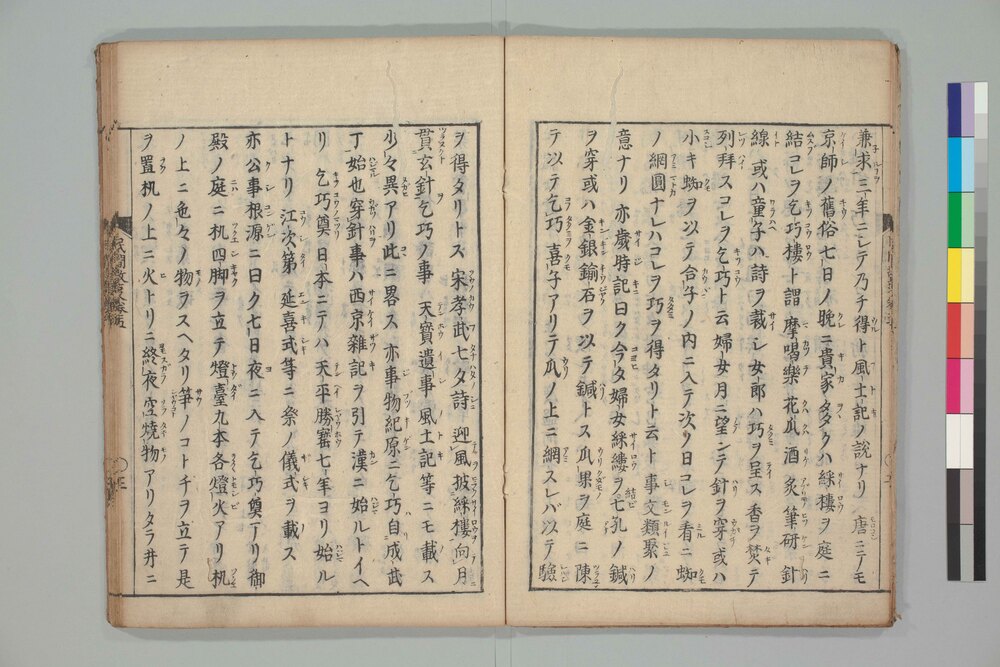 兼求三年ニシテ乃チ得ト風土記ノ説ナリ 唐ニテモ
京師ノ舊俗七日ノ晩ニ貴家タタクハ綵樓ヲ庭ニ
結コレヲ乞巧樓ト謂 摩喝樂 花瓜 酒 炙 筆研 針
線 或ハ童子ハ詩ヲ裁シ女郎ハ巧ヲ呈ス香ヲ焚テ
列拜スコレヲ乞巧ト云婦女月ニ望ンテ針ヲ穿或ハ
小キ蜘ヲ以テ合子ノ内ニ入テ次ノ日コレヲ看ニ蜘
ノ網圓ナレハコレヲ巧ヲ得タリト云ト事文類聚ノ
意ナリ 亦歳時記曰ク今夕婦女綵縷ヲ七孔ノ鍼
ヲ穿或ハ金銀鍮石ヲ以テ鍼トス瓜果ヲ庭ニ陳
テ以テ乞巧 喜子アリテ瓜ノ上ニ網スレバ以テ驗
ヲ得タリトス 宋孝武七夕詩 迎風披綵樓向月
貫玄針乞巧ノ事 天寶遺事 風土記等ニモ載ス
少々異アリ此ニ畧ス 亦事物紀原ニ乞巧自成武
丁始也穿針事ハ西京雜記ヲ引テ漢ニ始ルトイヘ
リ 乞巧奠日本ニテハ天平勝寳七年ヨリ始ル
トナリ 江次第 延喜式等ニ祭ノ儀式ヲ載ス
亦公事根源ニ曰ク七日夜ニ入テ乞巧奠アリ御
殿ノ庭ニ机四脚ヲ立テ燈臺九本各燈火アリ机
ノ上ニ色々ノ物ヲスヘタリ箏ノコトチヲ立テ是
ヲ置机ノ上ニ火トリニ終夜空燒物アリタラ井ニ